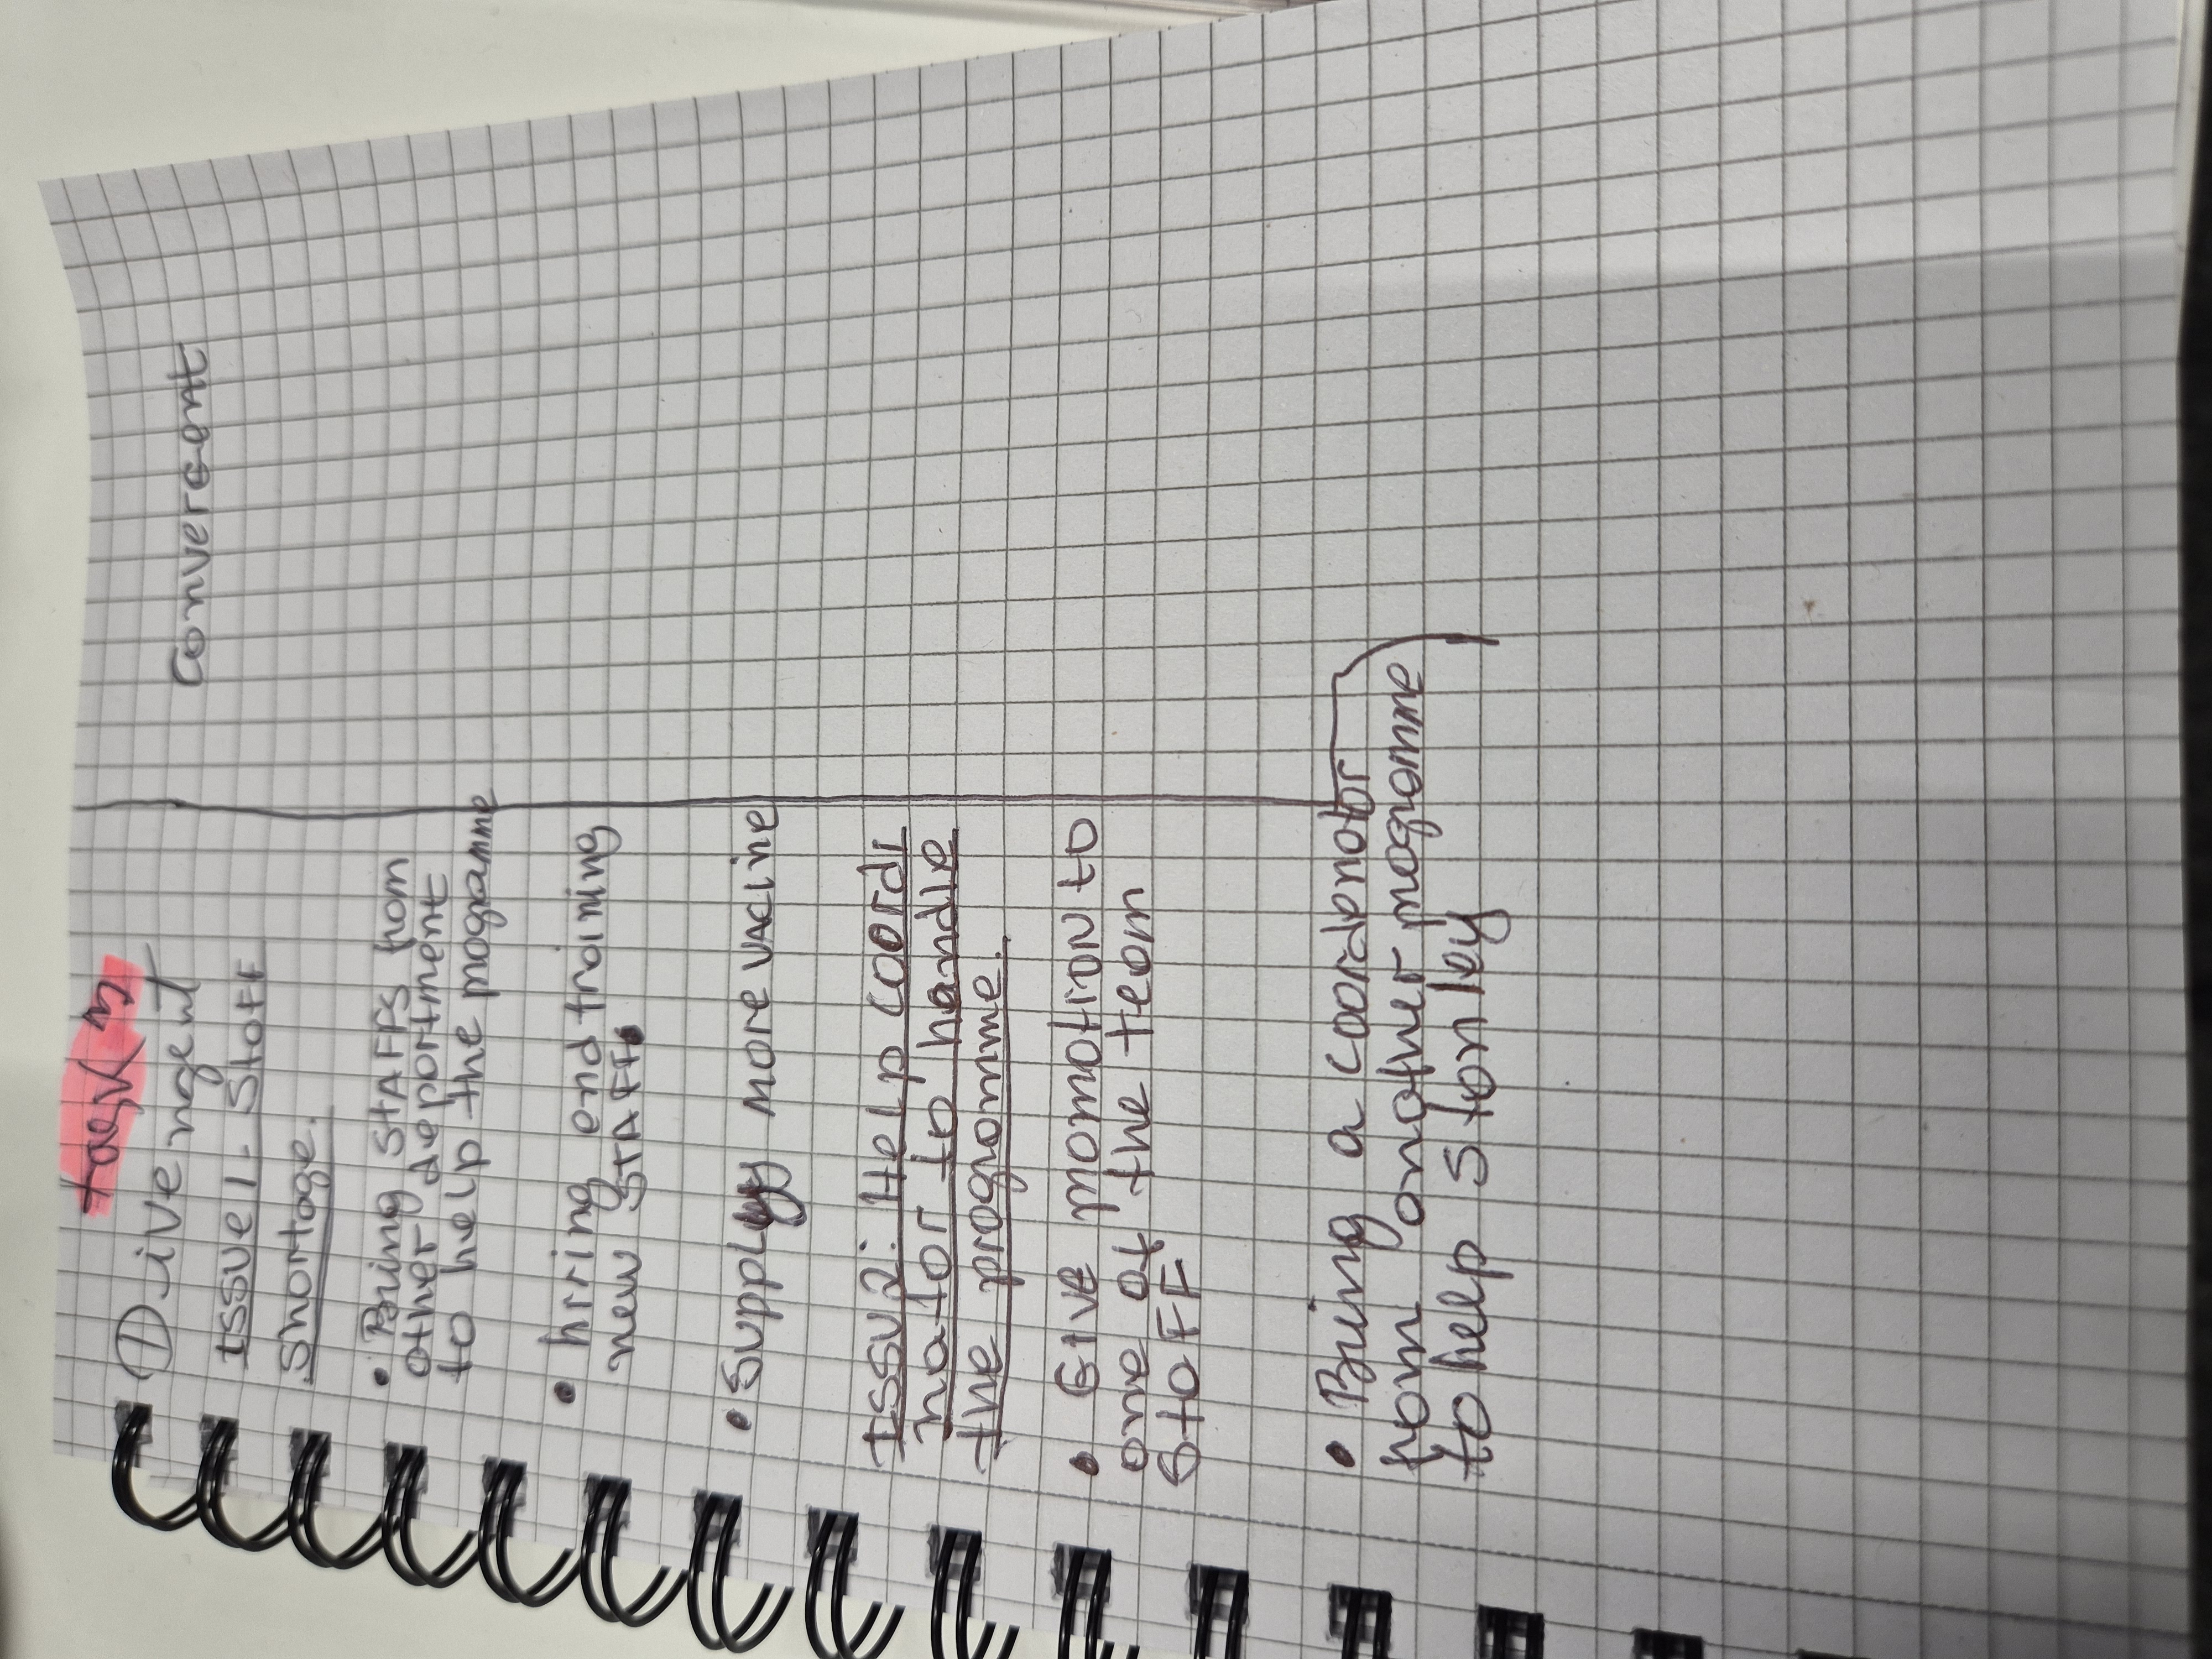 task 3
Divengent
Convercent
Issue 1. Staff
Shortage.
• Bring STAFFS from
other department
to help the progamme
• hiring end training
new STAFF.
• Supply more vaccine
Issu 2: Help coordi
nator to handle
the programme.
• Give promotion to
one of the team
Staff
• Bring a coordenator
from another programme
to help Stanley